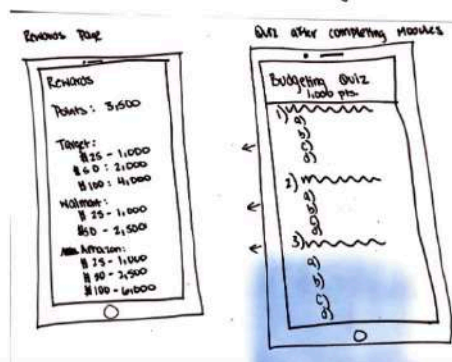 Rewards Page
Rewards
Points: 3,500
Target:
$25 - 1,000
$50 : 2,000
$100 : 4,000
Walmart:
$25 - 1,000
$50 - 2,500
Amazon:
$25 - 1,000
$50 - 2,500
$100 - 6,000
Quiz after completing Modules
Budgeting Quiz
1,000 pts.
1)
a)
b)
c)
d)
2)
a)
b)
c)
d)
3)
a)
b)
c)
d)